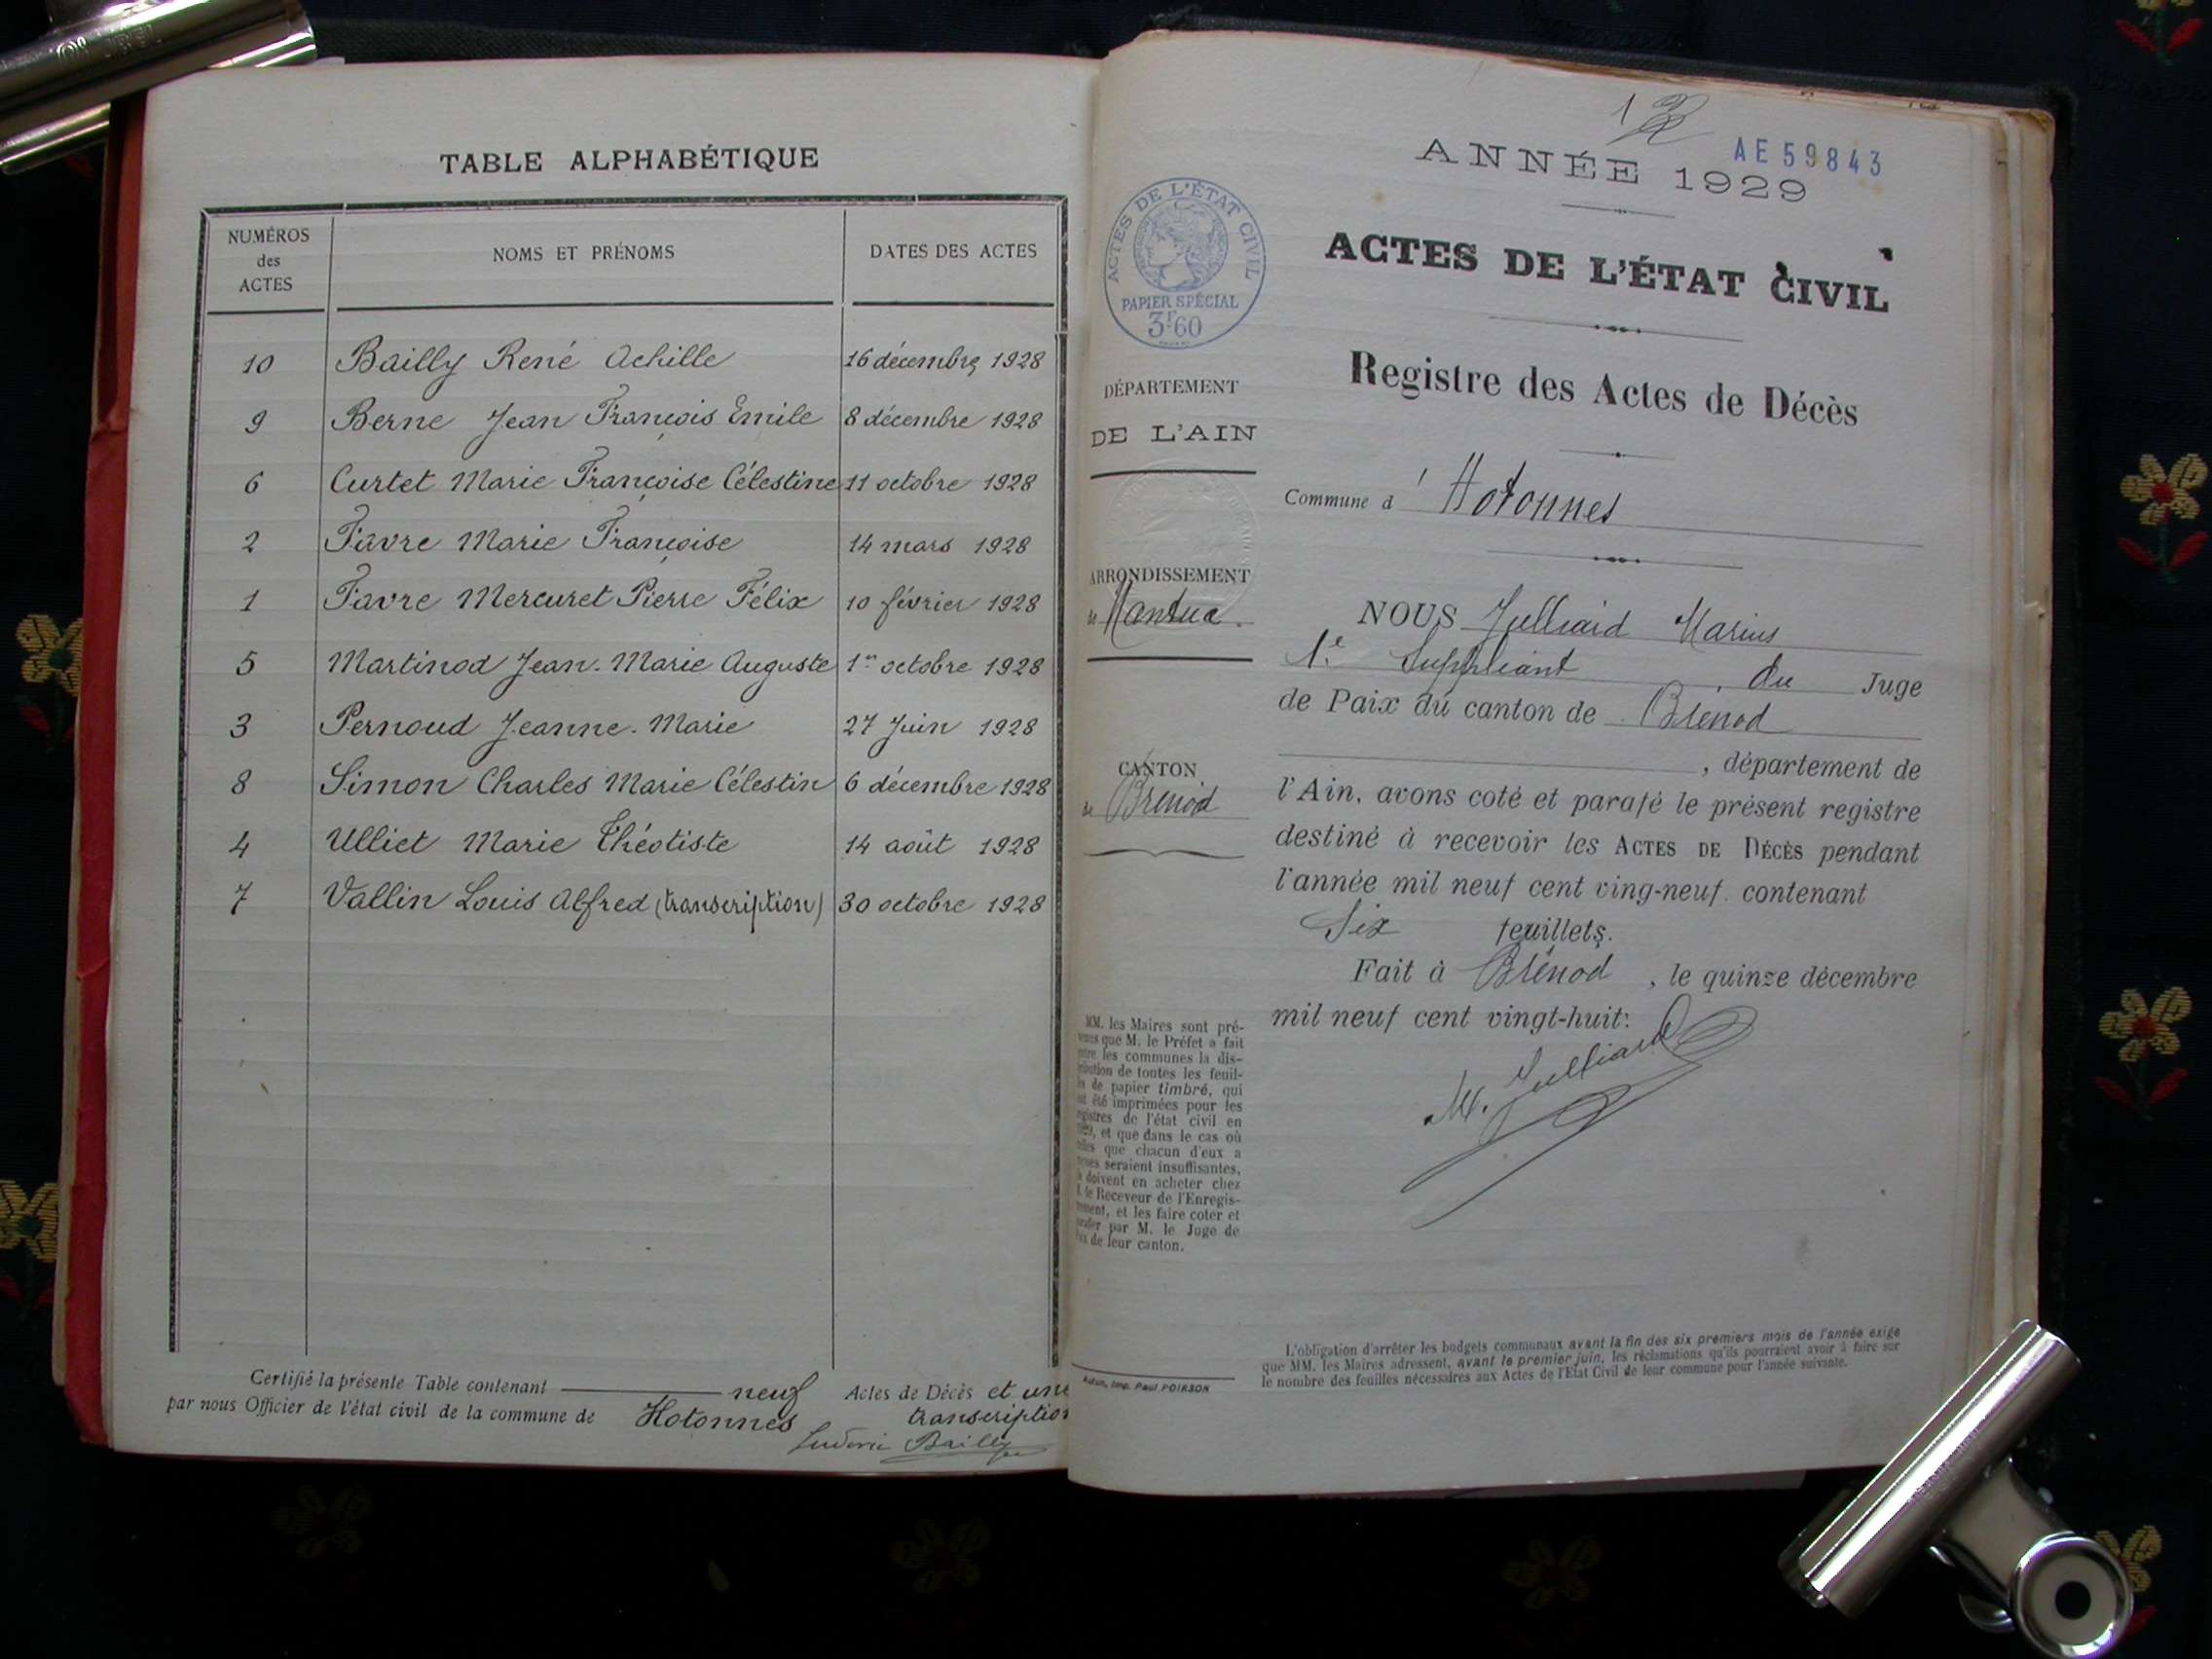 TABLE ALPHABÉTIQUE
NUMÉROS des ACTES NOMS ET PRÉNOMS DATES DES ACTES
10 Bailly René Achille 16 décembre 1928
9 Berne Jean François Emile 8 décembre 1928
6 Curtet Marie Françoise Célestine 11 octobre 1928
2 Favre Marie Françoise 14 mars 1928
1 Favre Mercuret Pierre Félix 10 février 1928
5 Martinod Jean-Marie Auguste 1er octobre 1928
3 Pernoud Jeanne-Marie 27 Juin 1928
8 Simon Charles Marie Célestin 6 décembre 1928
4 Ulliet Marie Théotiste 14 août 1928
7 Vallin Louis Alfred (transcription) 30 octobre 1928
Certifié la présente Table contenant neuf Actes de Décès et une
par nous Officier de l'état civil de la commune de Hotonnes transcription
Bailly
AE 59843
ANNÉE 1929
ACTES DE L'ÉTAT CIVIL
PAPIER SPÉCIAL
3F60
ACTES DE L'ÉTAT CIVIL
Registre des Actes de Décès
DÉPARTEMENT
DE L'AIN
Commune d' Hotonnes
ARRONDISSEMENT
de Nantua.
CANTON
de Brénod
NOUS Julliard Marius
1er Suppléant du Juge
de Paix du canton de Brénod
, département de
l'Ain, avons coté et parafé le présent registre
destiné à recevoir les ACTES DE DÉCÈS pendant
l'année mil neuf cent ving-neuf. contenant
Six feuillets.
Fait à Brénod, le quinze décembre
mil neuf cent vingt-huit:
M. Julliard
MM. les Maires sont pré-
que M. le Préfet a fait
les communes la dis-
de toutes les feuil-
de papier timbré, qui
été imprimées pour les
de l'état civil en
et que dans le cas où
que chacun d'eux a
seraient insuffisantes,
doivent en acheter chez
le Receveur de l'Enregis-
et les faire coter et
par M. le Juge de
de leur canton.
Imp. Paul POIRSON
L'obligation d'arrêter les budgets communaux avant la fin des six premiers mois de l'année exige
que MM. les Maires adressent, avant le premier juin, les réclamations qu'ils pourraient avoir à faire sur
le nombre des feuilles nécessaires aux Actes de l'Etat Civil de leur commune pour l'année suivante.